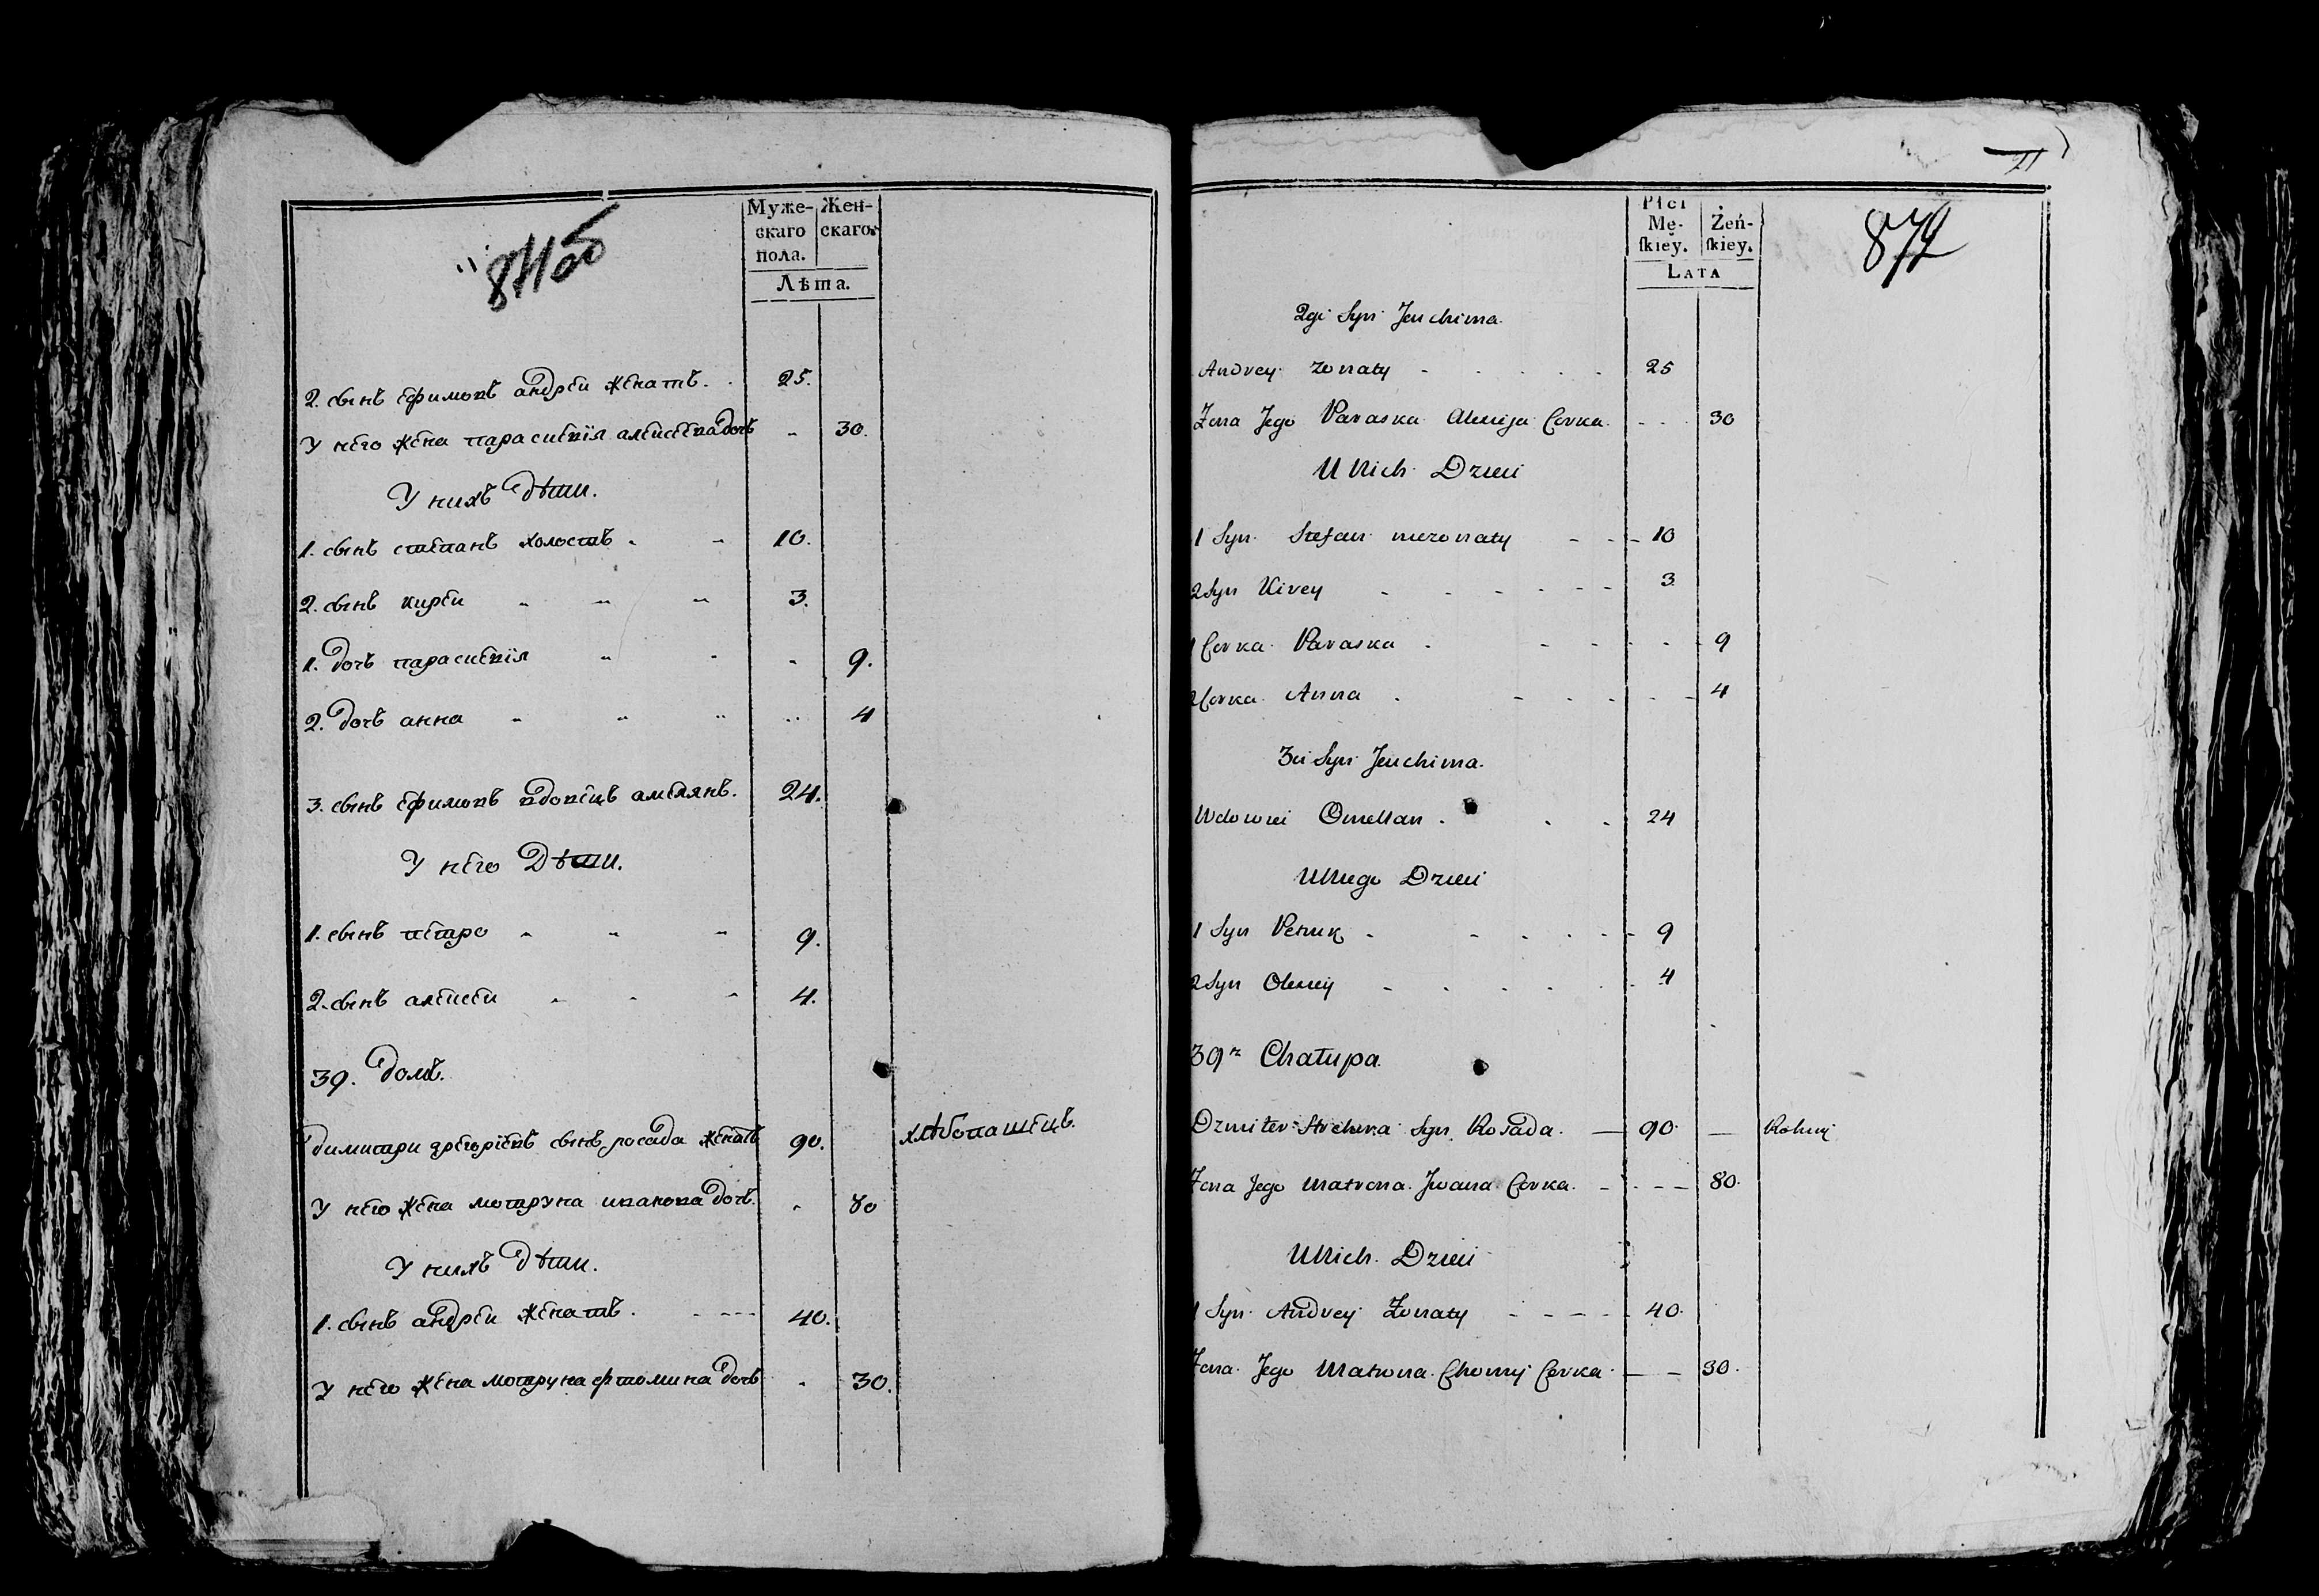 871об
Муже-
скаго
пола.
Жен-
скаго.
Лѣта.
2. сынъ ефимовъ андреи женатъ. 25.
У него жена парасцевія алексеева дочъ 30.
У нихъ Дѣти.
1. сынъ степанъ холостъ 10.
2. сынъ киреи 3.
1. дочъ парасцевія 9.
2. дочъ анна 4
3. сынъ ефимовъ вдовецъ амелянъ. 24.
У него Дѣти.
1. сынъ петро 9.
2. сынъ алексеи 4.
39. домъ.
димитри грегориевъ сынъ росада женатъ 90. хлѣбопашецъ.
У него жена мотруна иванова дочъ. 80
У нихъ дѣти.
1. сынъ андреи женатъ. 40.
У него жена мотруна фтомина дочъ 30.
21
872
Płci
Mę-
ſkiey.
Żeń-
ſkiey.
LATA
2gi Syn Jeuchima
Andrey zonaty 25
Zona Jego Paraska Alexieja Corka 30
U Nich Dzieci
1 Syn Stefan niezonaty 10
2 Syn Kirey 3
1 Corka Paraska 9
2 Corka Anna 4
3ci Syn Jeuchima
Wdowiec Omellan 24
U Niego Dzieci
1 Syn Petruk 9
2 Syn Olexiey 4
39a Chałupa
Dzmiter Syn Rosada 90 Rolniy
Zona Jego Matrona Jwana Corka 80
U Nich Dzieci
1 Syn Andrey Zonaty 40
Zona Jego Matrona Chomy Corka 30